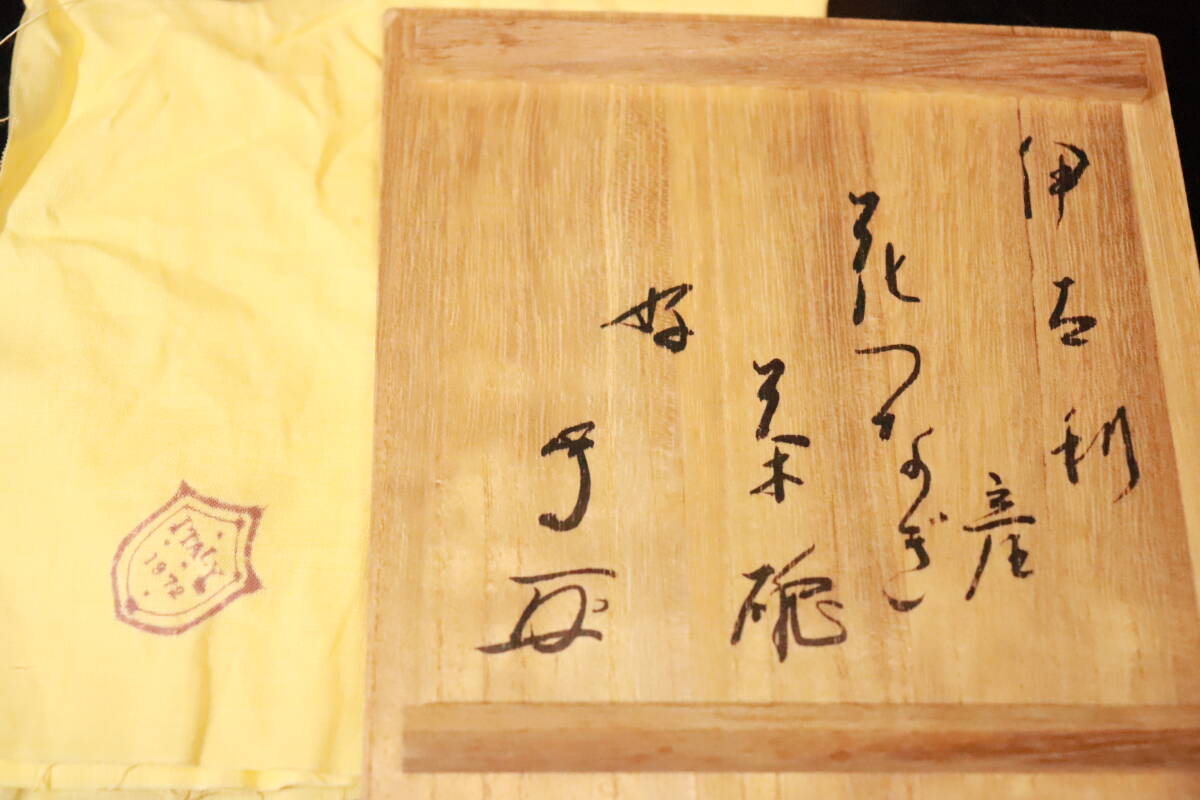 伊太利
産
花つなぎ
茶碗
好
ITALY
1972